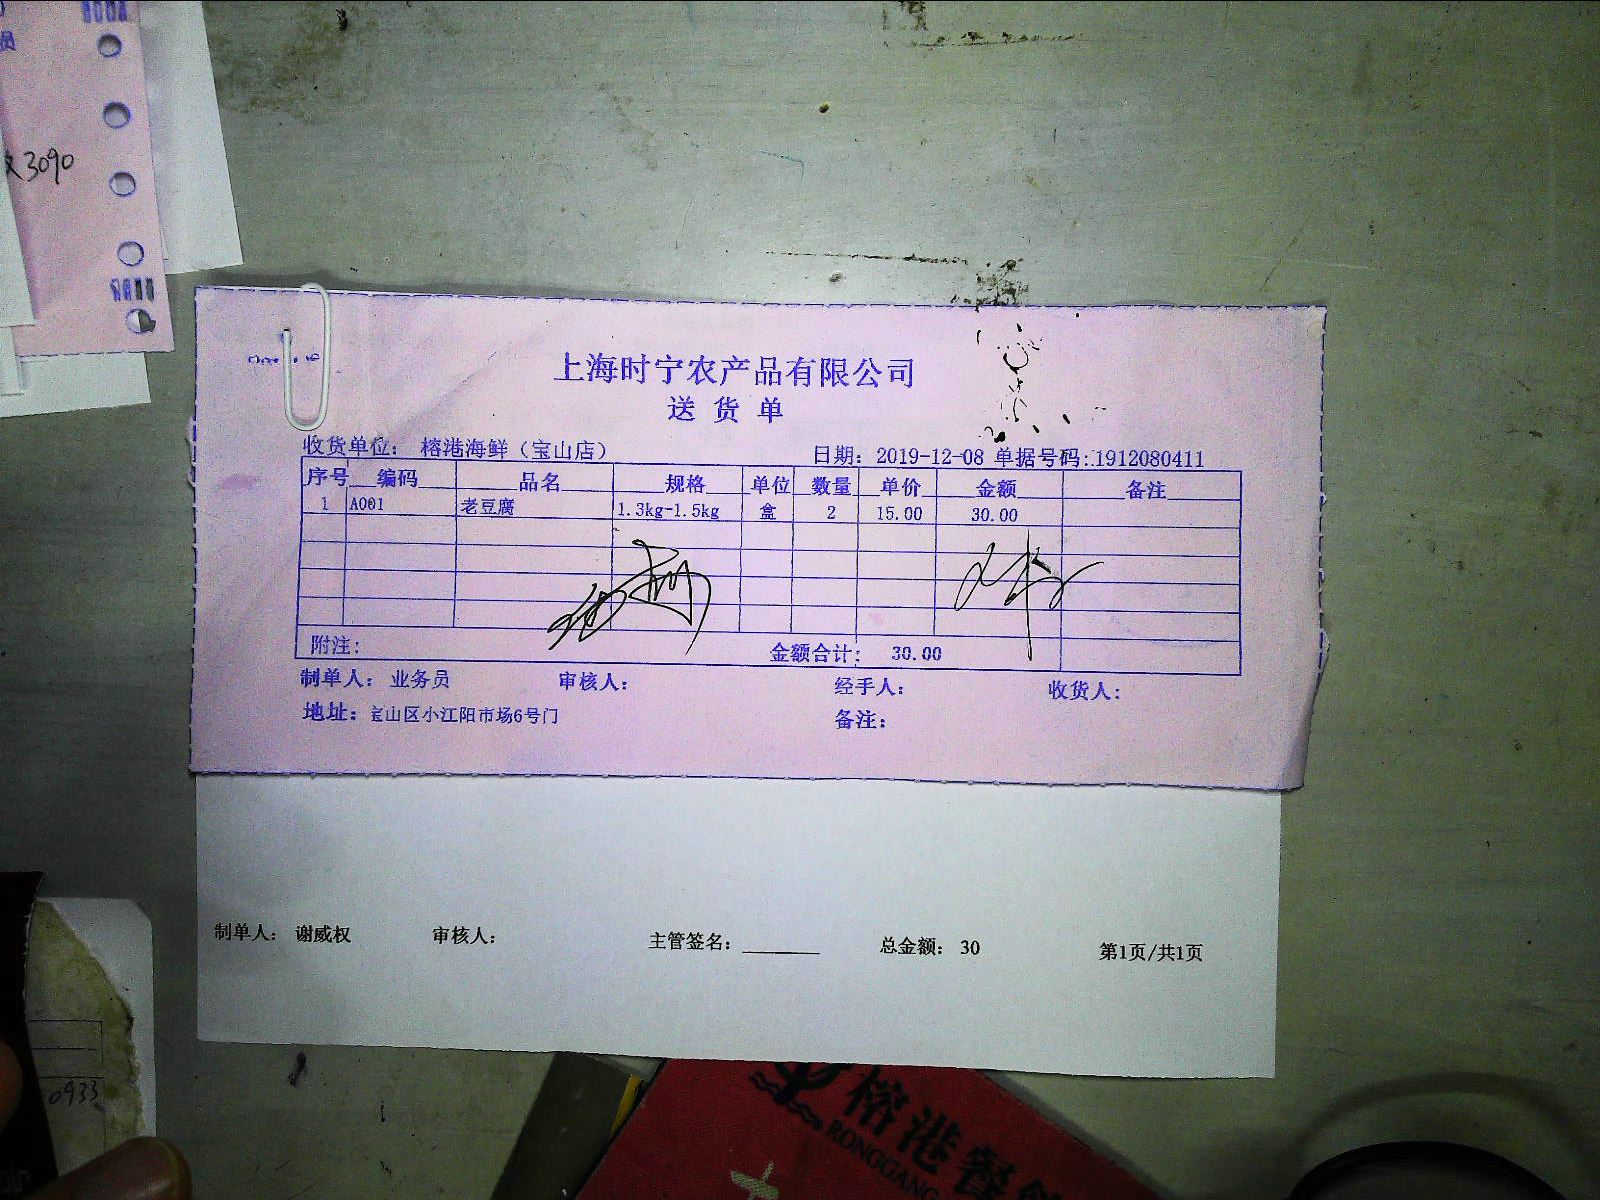 员
3090
上海时宁农产品有限公司
送货单
收货单位: 榕港海鲜（宝山店） 日期: 2019-12-08 单据号码:1912080411
序号 编码 品名 规格 单位 数量 单价 金额 备注
1 A001 老豆腐 1.3kg-1.5kg 盒 2 15.00 30.00
附注: 金额合计: 30.00
制单人: 业务员 审核人: 经手人: 收货人:
地址: 宝山区小江阳市场6号门 备注:
制单人: 谢威权 审核人: 主管签名: 总金额: 30 第1页/共1页
0933
榕港餐
RONGGANG